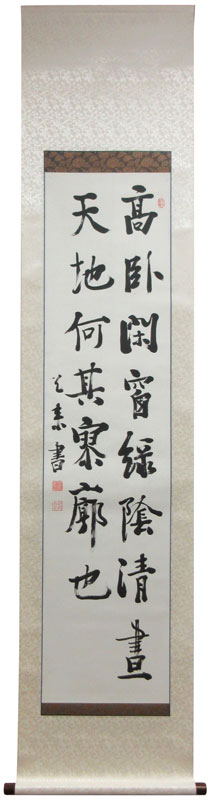 高臥閑窗綠陰清晝
天地何其寥廓也
書